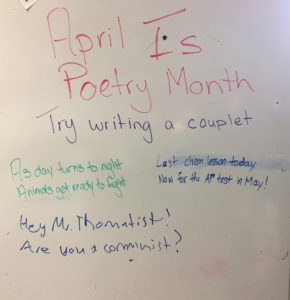 April Is
Poetry Month
Try writing a couplet
As day turns to night
Animals get ready to fight
Last chem lesson today
Now for the AP test in May!
Hey Mr. Thomatist!
Are you a communist?